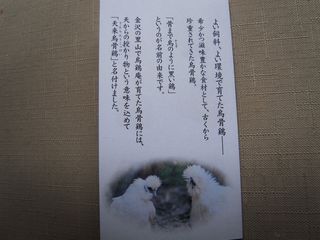 よい飼料、よい環境で育てた烏骨鶏――
希少かつ滋味豊かな食材として、古くから
珍重されてきた烏骨鶏。
「骨まで烏のように黒い鶏」
というのが名前の由来です。
金沢の里山で烏鶏庵が育てた烏骨鶏には、
天からの授かり物という意味を込めて
「天来烏骨鶏」と名付けました。